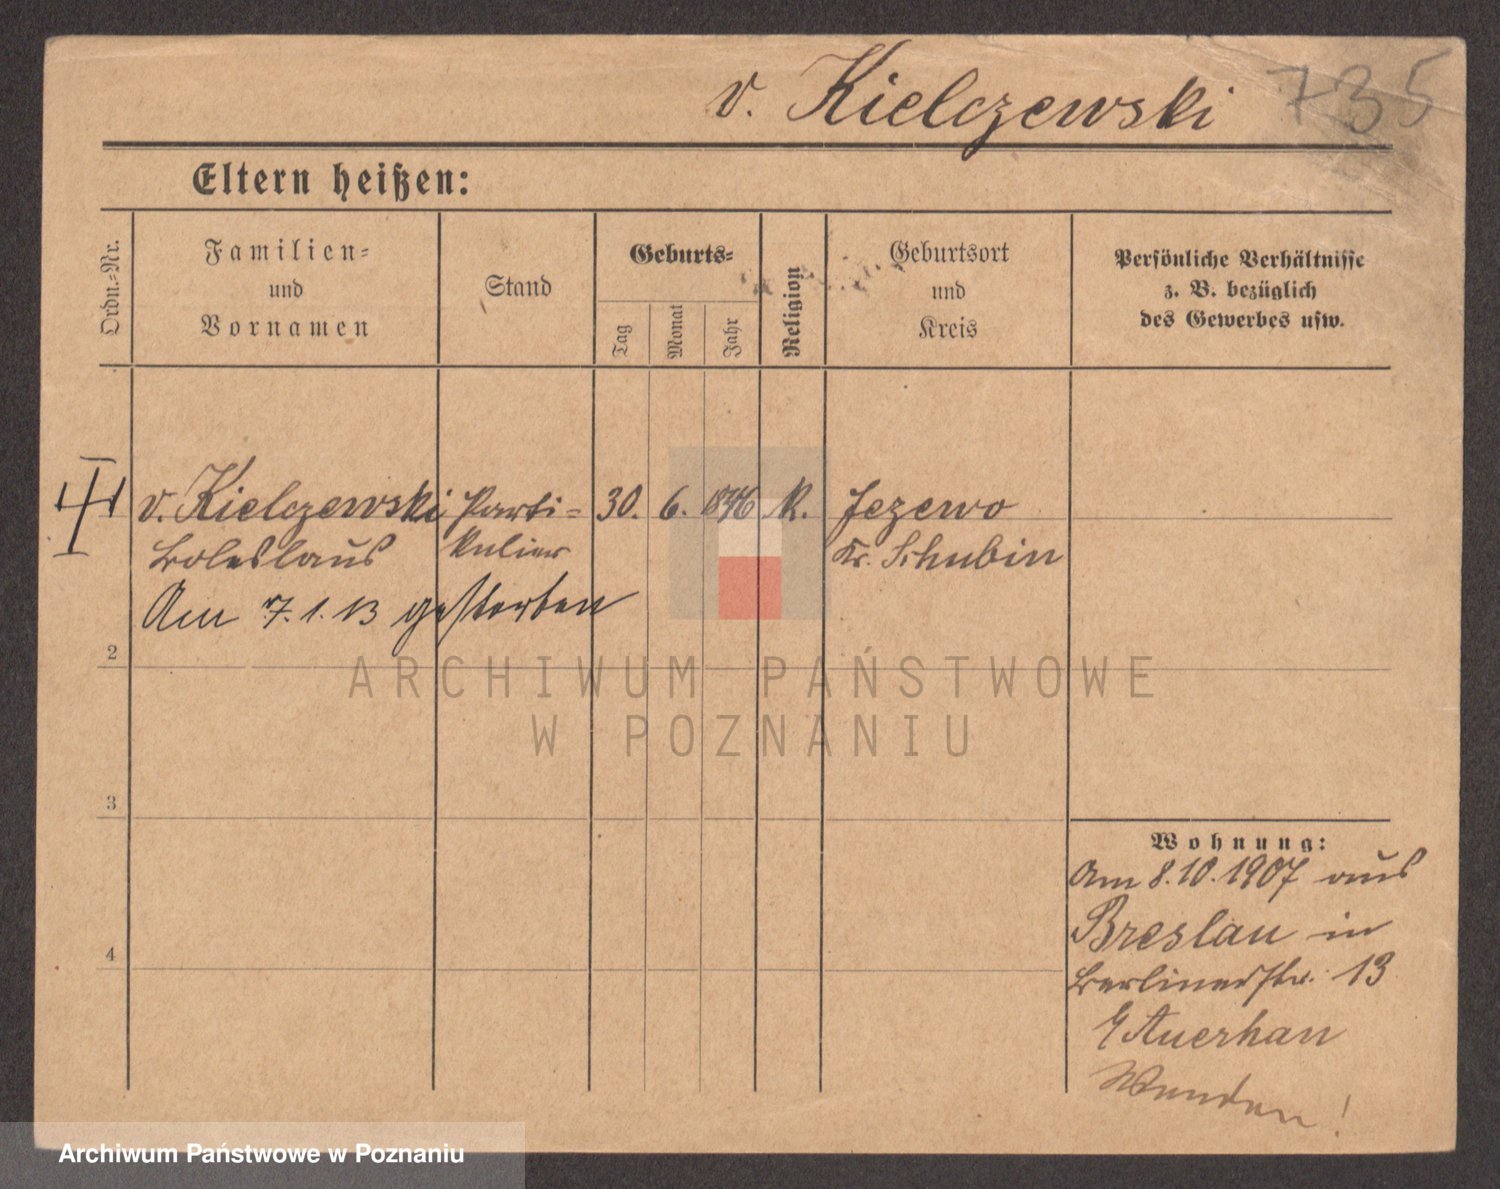 v. Kielczewski 735
Eltern heißen:
Ordn.-Nr.
Familien-
und
Vornamen
Stand
Geburts-
Tag
Monat
Jahr
Religion
Geburtsort
und
Kreis
Persönliche Verhältnisse
z. B. bezüglich
des Gewerbes usw.
v. Kielczewski Parti- 30. 6. 1846 k. Jezewo
Boleslaus kulier Kr. Schubin
Am 7.1.13 gestorben
2
3
4
Wohnung:
Am 8.10.1907 aus
Breslau in
Berlinerstr. 13
Auerhan
Wenden!
ARCHIWUM PAŃSTWOWE
W POZNANIU
Archiwum Państwowe w Poznaniu